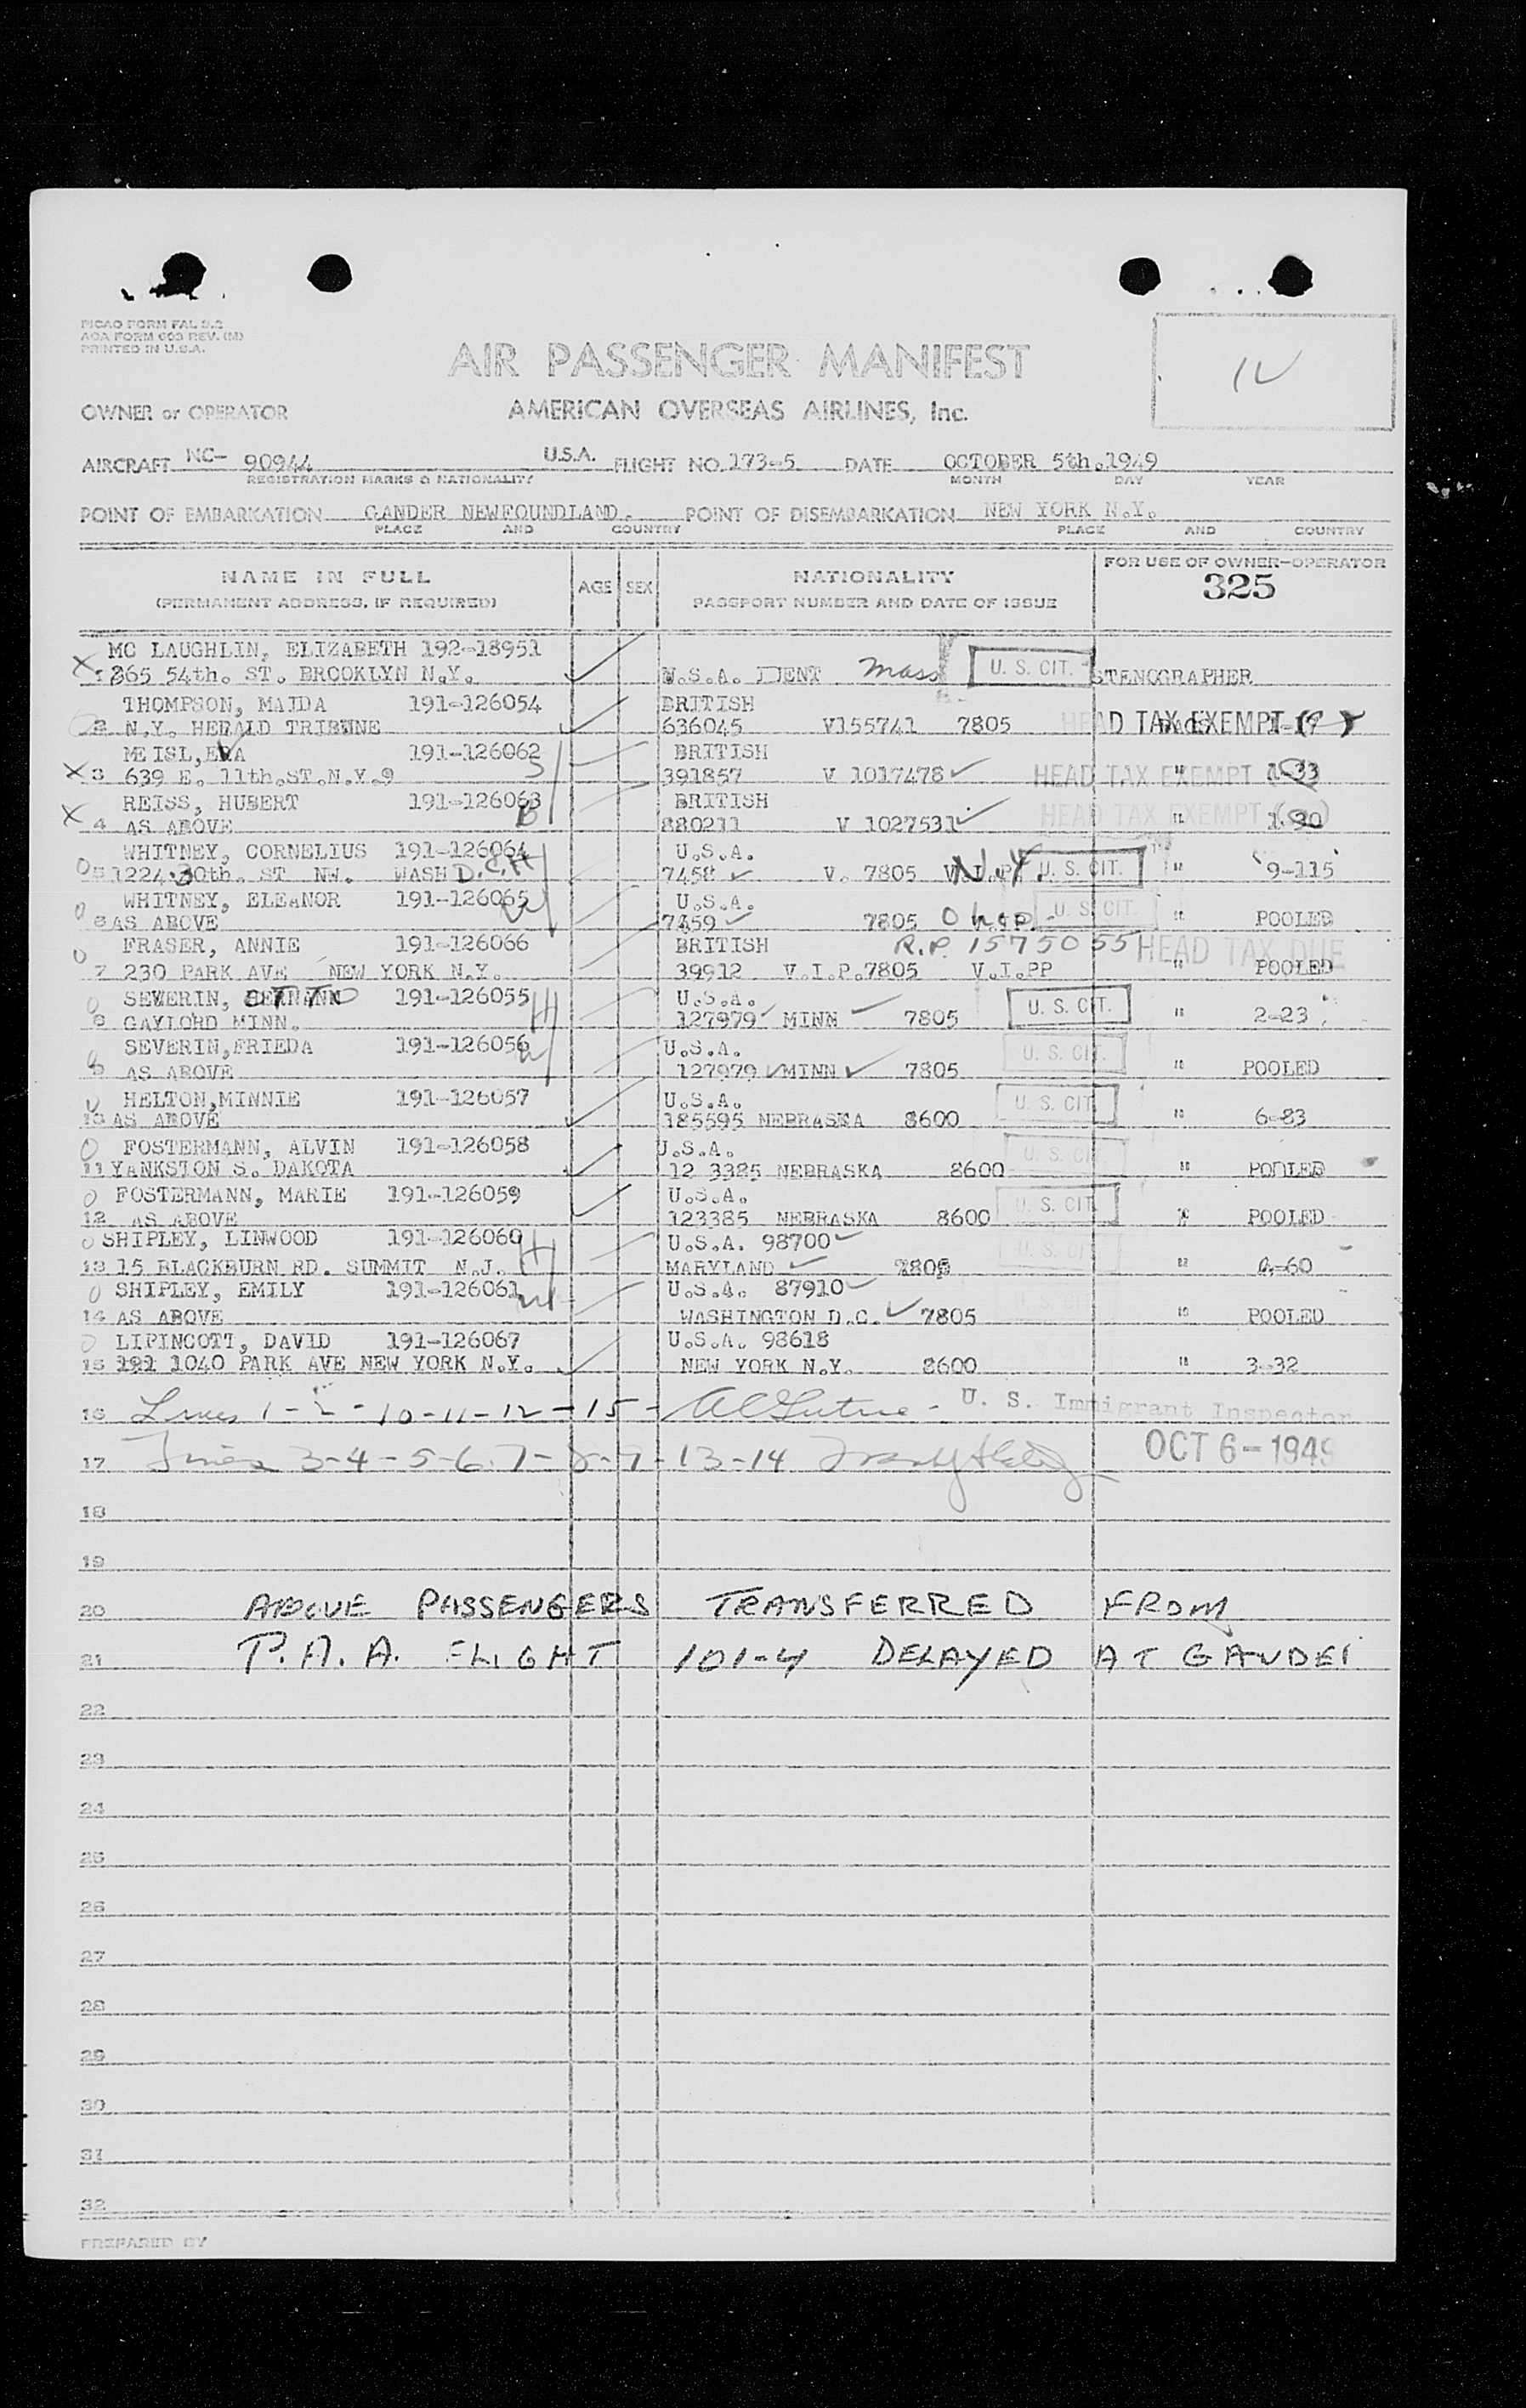 PICAO FORM FAL 5.2
AOA FORM 603 REV. (M)
PRINTED IN U.S.A.
AIR PASSENGER MANIFEST
OWNER or OPERATOR AMERICAN OVERSEAS AIRLINES, Inc.
AIRCRAFT NC- 90944 U.S.A. FLIGHT NO. 173-5 DATE OCTOBER 5th.1949
REGISTRATION MARKS & NATIONALITY MONTH DAY YEAR
POINT OF EMBARKATION GANDER NEWFOUNDLAND. POINT OF DISEMBARKATION NEW YORK N.Y.
PLACE AND COUNTRY PLACE AND COUNTRY
NAME IN FULL AGE SEX NATIONALITY FOR USE OF OWNER-OPERATOR
(PERMANENT ADDRESS, IF REQUIRED) PASSPORT NUMBER AND DATE OF ISSUE 325
MC LAUGHLIN, ELIZABETH 192-18951
X 1 865 54th. ST. BROOKLYN N.Y. U.S.A. IDENT Mass U. S. CIT. STENOGRAPHER
THOMPSON, MAIDA 191-126054 BRITISH
2 N.Y. HERALD TRIBUNE 636045 V155741 7805 HEAD TAX EXEMPT
MEISL, EVA 191-126062 BRITISH
X 3 639 E. 11th.ST.N.Y.9 391857 V 1017478 HEAD TAX EXEMPT " 1-33
REISS, HUBERT 191-126063 BRITISH
X 4 AS ABOVE 880211 V 1027531 HEAD TAX EXEMPT " 1.30
WHITNEY, CORNELIUS 191-126064 U.S.A.
5 1224 30th. ST NW. WASH D.C. 7458 V. 7805 N.Y. U. S. CIT. " 9-115
WHITNEY, ELEANOR 191-126065 U.S.A.
6 AS ABOVE 7459 7805 Ohio U. S. CIT. " POOLED
FRASER, ANNIE 191-126066 BRITISH R.P. 1575055 HEAD TAX DUE
7 230 PARK AVE NEW YORK N.Y. 39912 V.I.P.7805 V.I.PP " POOLED
SEVERIN, OTTO 191-126055 U.S.A.
8 GAYLORD MINN. 127979 MINN 7805 U. S. CIT. " 2-23
SEVERIN,FRIEDA 191-126056 U.S.A.
9 AS ABOVE 127979 MINN 7805 U. S. CIT. " POOLED
HELTON,MINNIE 191-126057 U.S.A.
10 AS ABOVE 185595 NEBRASKA 8600 U. S. CIT. " 6-83
FOSTERMANN, ALVIN 191-126058 U.S.A.
11 YANKSTON S. DAKOTA 12 3385 NEBRASKA 8600 U. S. CIT. " POOLED
FOSTERMANN, MARIE 191-126059 U.S.A.
12 AS ABOVE 123385 NEBRASKA 8600 U. S. CIT. " POOLED
SHIPLEY, LINWOOD 191-126060 U.S.A. 98700
13 15 BLACKBURN RD. SUMMIT N.J. MARYLAND 7805 U. S. CIT. " 4-60
SHIPLEY, EMILY 191-126061 U.S.A. 87910
14 AS ABOVE WASHINGTON D.C. 7805 " POOLED
LIPINCOTT, DAVID 191-126067 U.S.A. 98618
15 191 1040 PARK AVE NEW YORK N.Y. NEW YORK N.Y. 8600 " 3-32
16 Lines 1-2-10-11-12-15- U. S. Immigrant Inspector
17 Lines 3-4-5-6-7-8-9-13-14 OCT 6-1949
18
19
20 ABOVE PASSENGERS TRANSFERRED FROM
21 P.A.A. FLIGHT 101-4 DELAYED AT GANDER
22
23
24
25
26
27
28
29
30
31
32
PREPARED BY